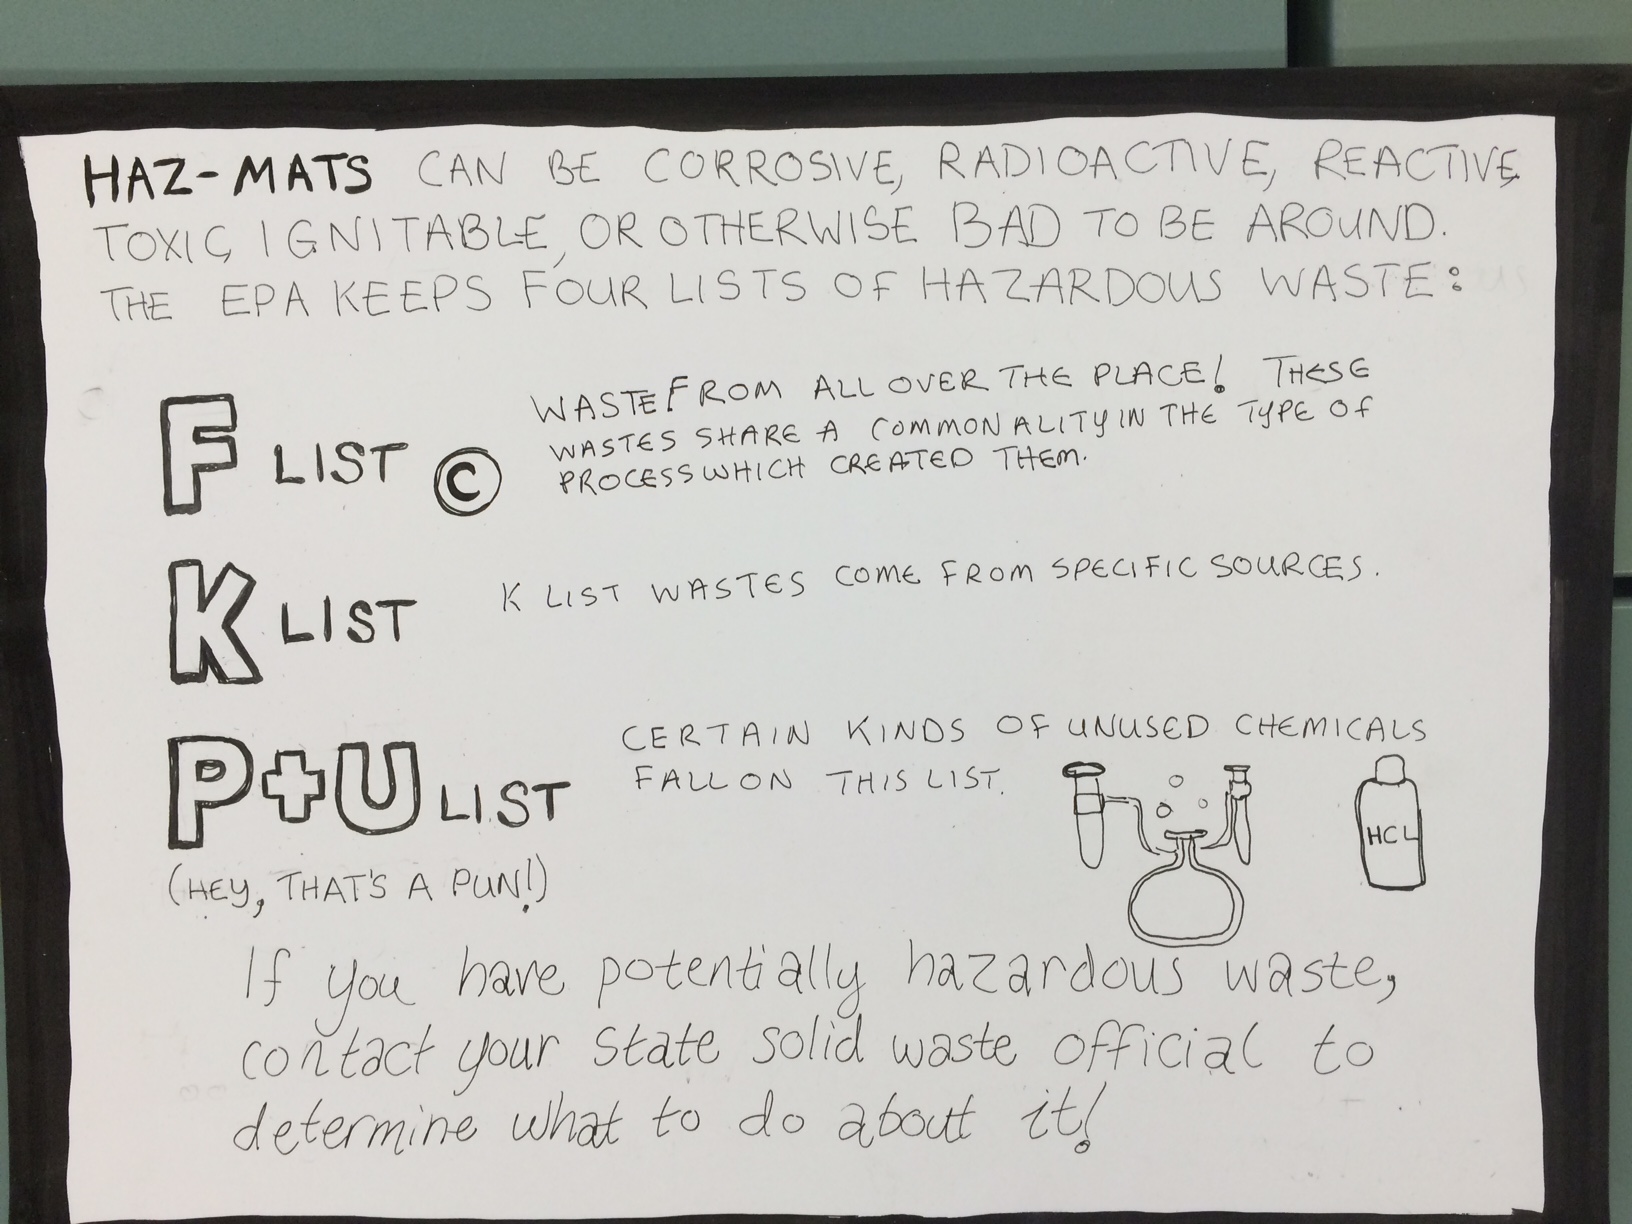 HAZ-MATS CAN BE CORROSIVE, RADIOACTIVE, REACTIVE,
TOXIC, IGNITABLE, OR OTHERWISE BAD TO BE AROUND.
THE EPA KEEPS FOUR LISTS OF HAZARDOUS WASTE:
F LIST ©
WASTE FROM ALL OVER THE PLACE! THESE
WASTES SHARE A COMMONALITY IN THE TYPE OF
PROCESS WHICH CREATED THEM.
K LIST
K LIST WASTES COME FROM SPECIFIC SOURCES.
P+U LIST
(HEY, THAT'S A PUN!)
CERTAIN KINDS OF UNUSED CHEMICALS
FALL ON THIS LIST.
HCL
If you have potentially hazardous waste,
contact your state solid waste official to
determine what to do about it!